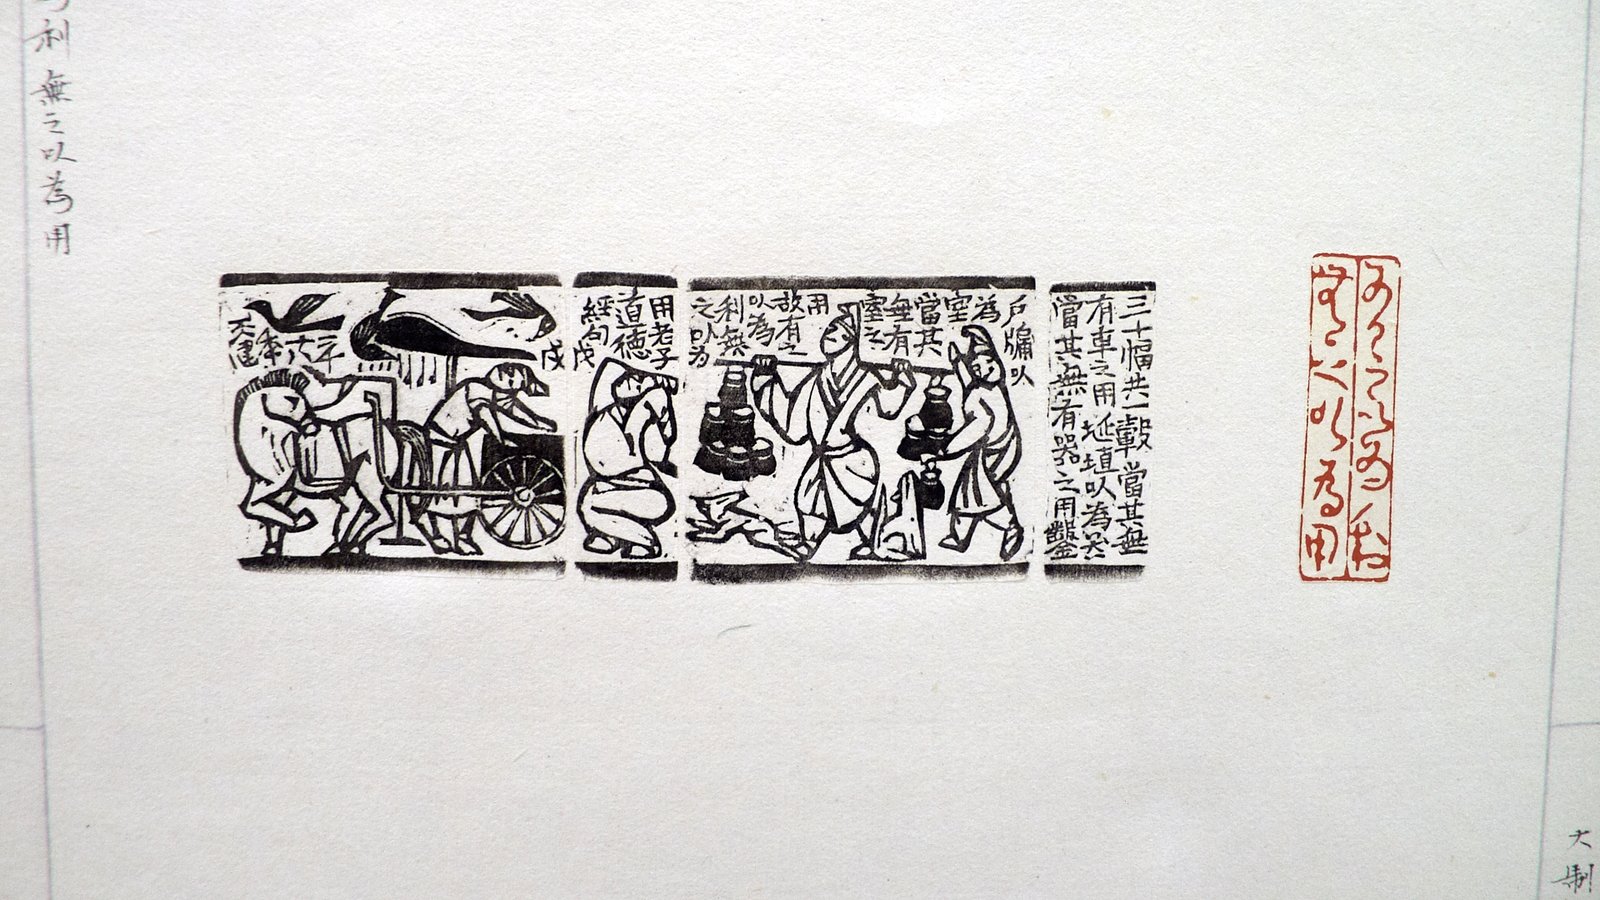 大制
有之以為利
無之以為用
三十幅共一轂當其無
有車之用埏埴以為器
當其無有器之用鑿
戶牖以
為
室
當其
無有
室之
用
故有之
以為
利無
之以為
用老子
道德
經句戊
戌
利無之以為用